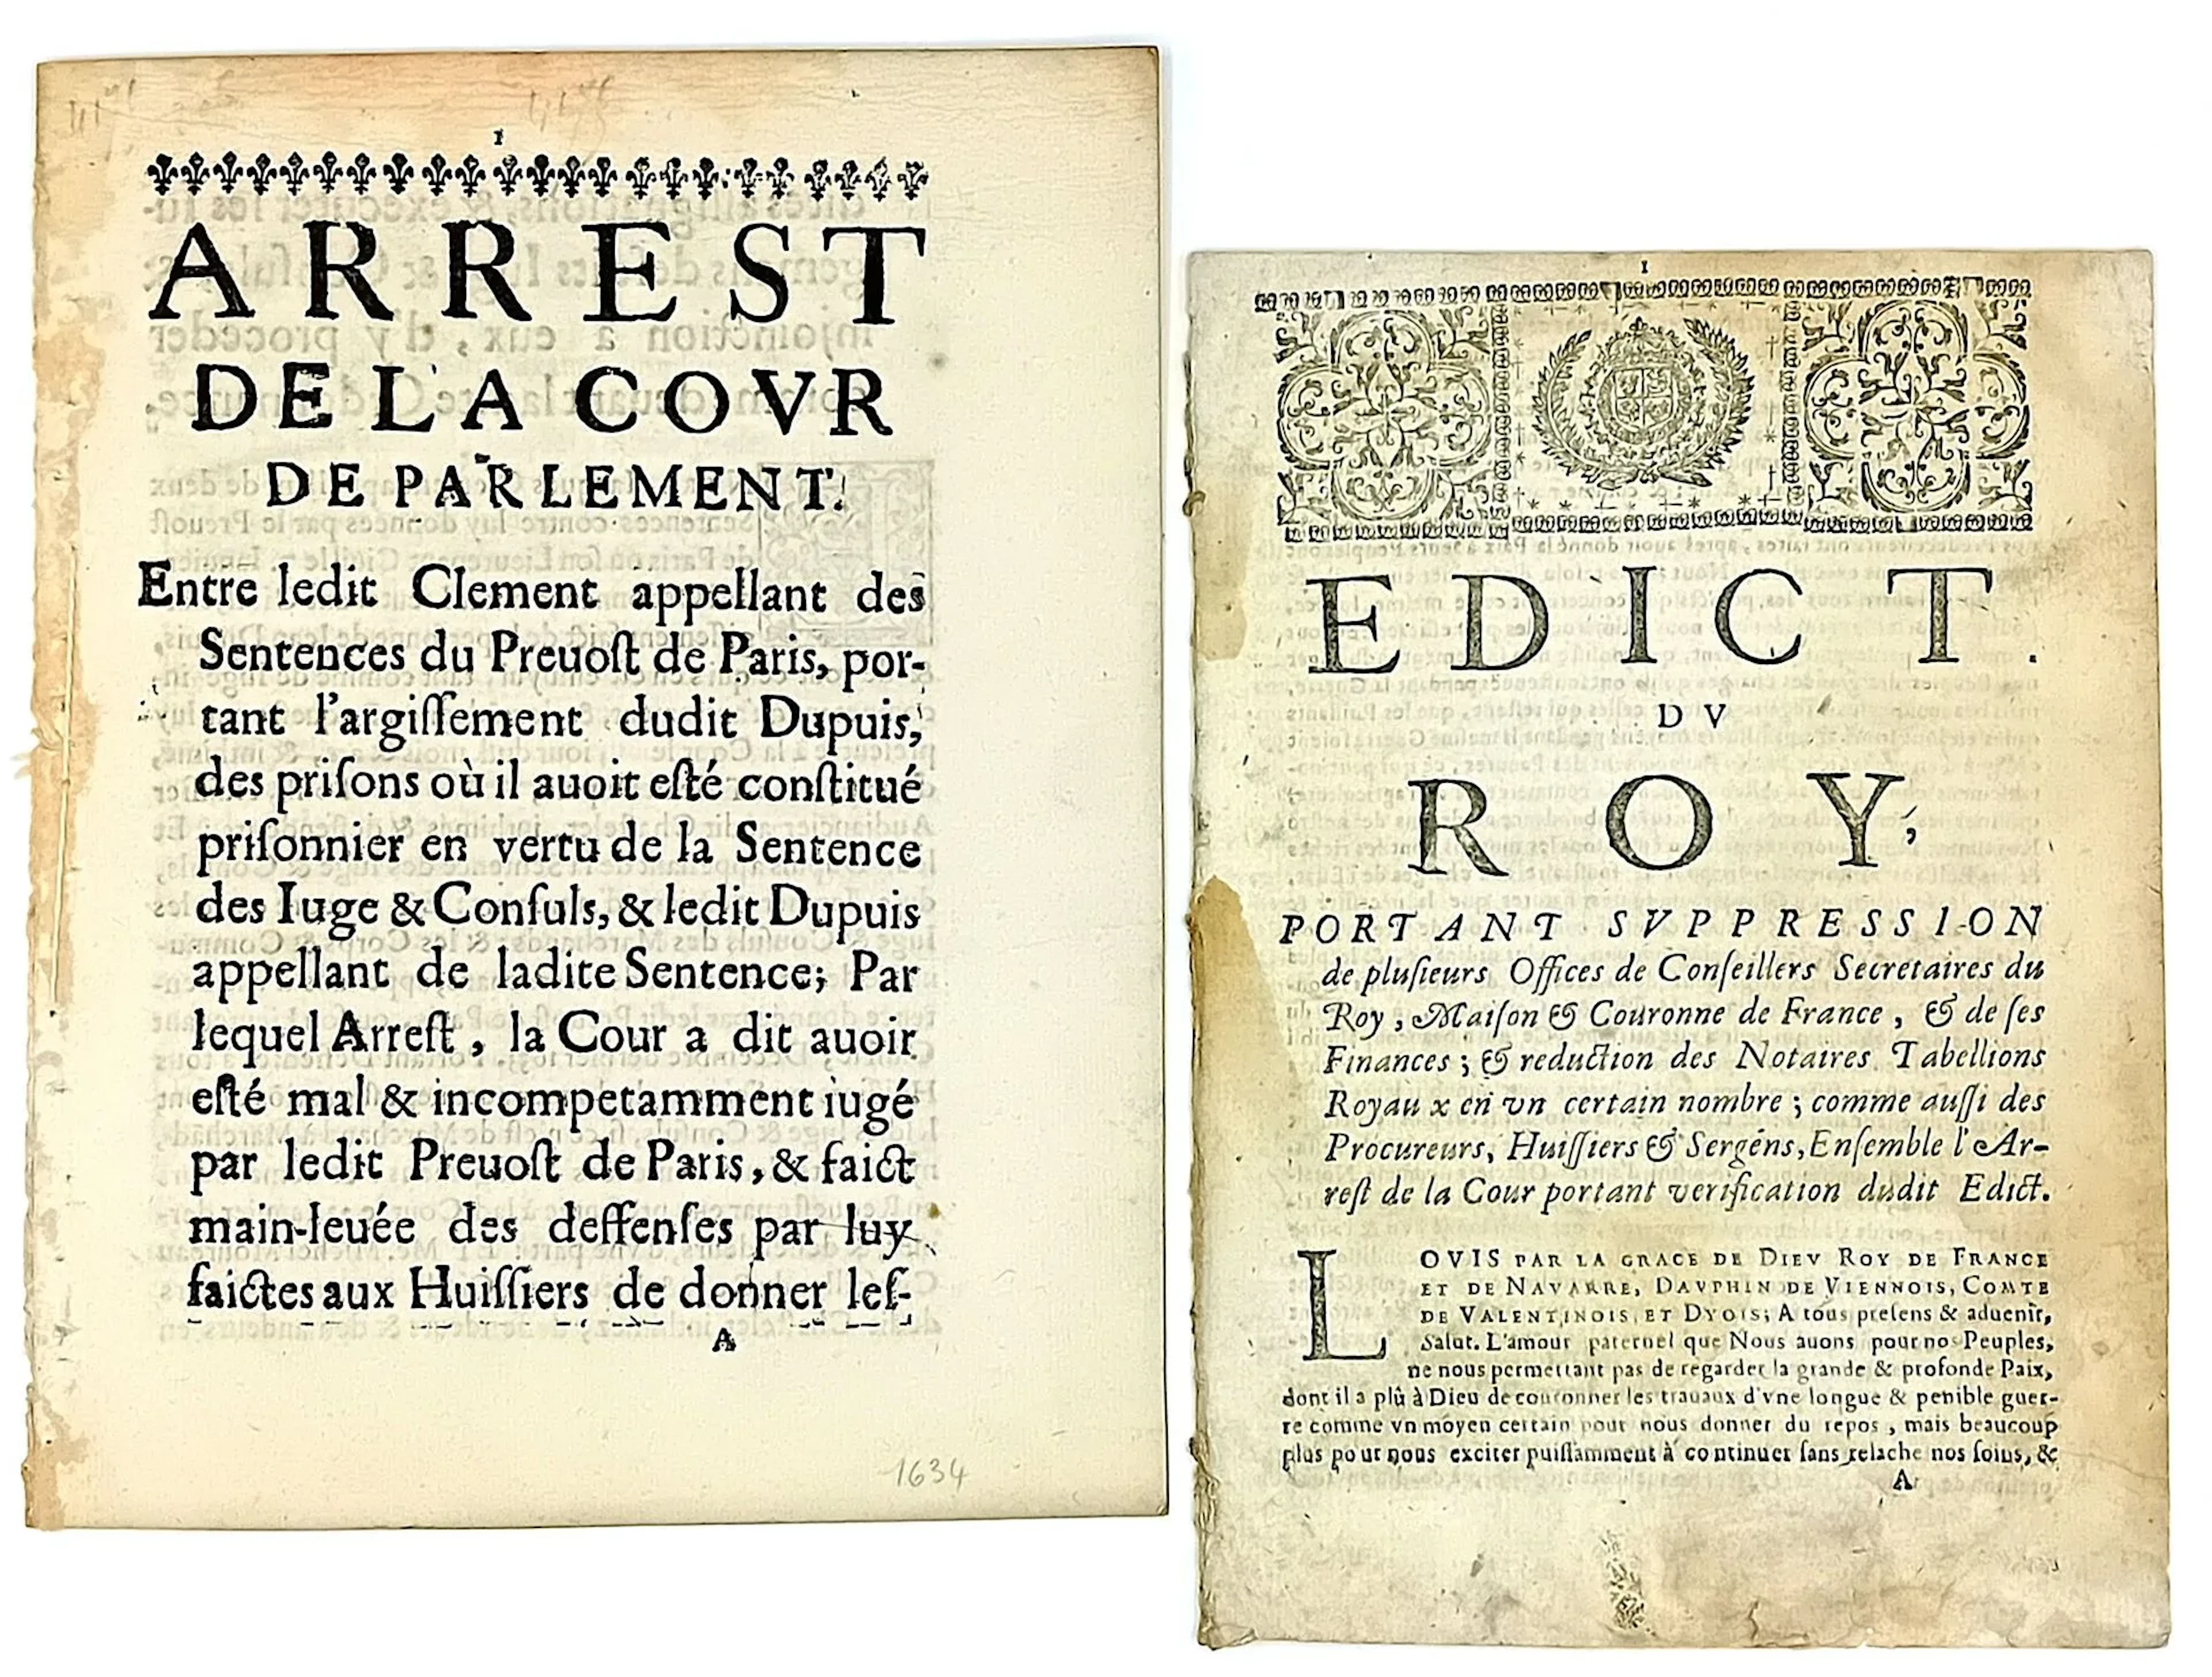 1
ARREST
DE LA COVR
DE PARLEMENT.
Entre ledit Clement appellant des
Sentences du Preuoſt de Paris, por-
tant l'argiſſement dudit Dupuis,
des priſons où il auoit eſté conſtitué
priſonnier en vertu de la Sentence
des Iuge & Conſuls, & ledit Dupuis
appellant de ladite Sentence; Par
lequel Arreſt, la Cour a dit auoir
eſté mal & incompetamment iugé
par ledit Preuoſt de Paris, & faict
main-leuée des deffenſes par luy
faictes aux Huiſſiers de donner leſ-
A
1634
1
EDICT.
DV
ROY,
PORTANT SVPPRESSION
de pluſieurs Offices de Conſeillers Secretaires du
Roy, Maiſon & Couronne de France, & de ſes
Finances; & reduction des Notaires Tabellions
Royaux en vn certain nombre; comme auſſi des
Procureurs, Huiſſiers & Sergéns, Enſemble l'Ar-
reſt de la Cour portant verification dudit Edict.
LOVIS PAR LA GRACE DE DIEV ROY DE FRANCE
ET DE NAVARRE, DAVPHIN DE VIENNOIS, COMTE
DE VALENTINOIS ET DYOIS; A tous preſens & aduenir,
Salut. L'amour paternel que Nous auons pour nos Peuples,
ne nous permettant pas de regarder la grande & profonde Paix,
dont il a plû à Dieu de couronner les trauaux d'vne longue & penible guer-
re comme vn moyen certain pour nous donner du repos, mais beaucoup
plus pour nous exciter puiſſamment à continuer ſans relache nos ſoins, &
A